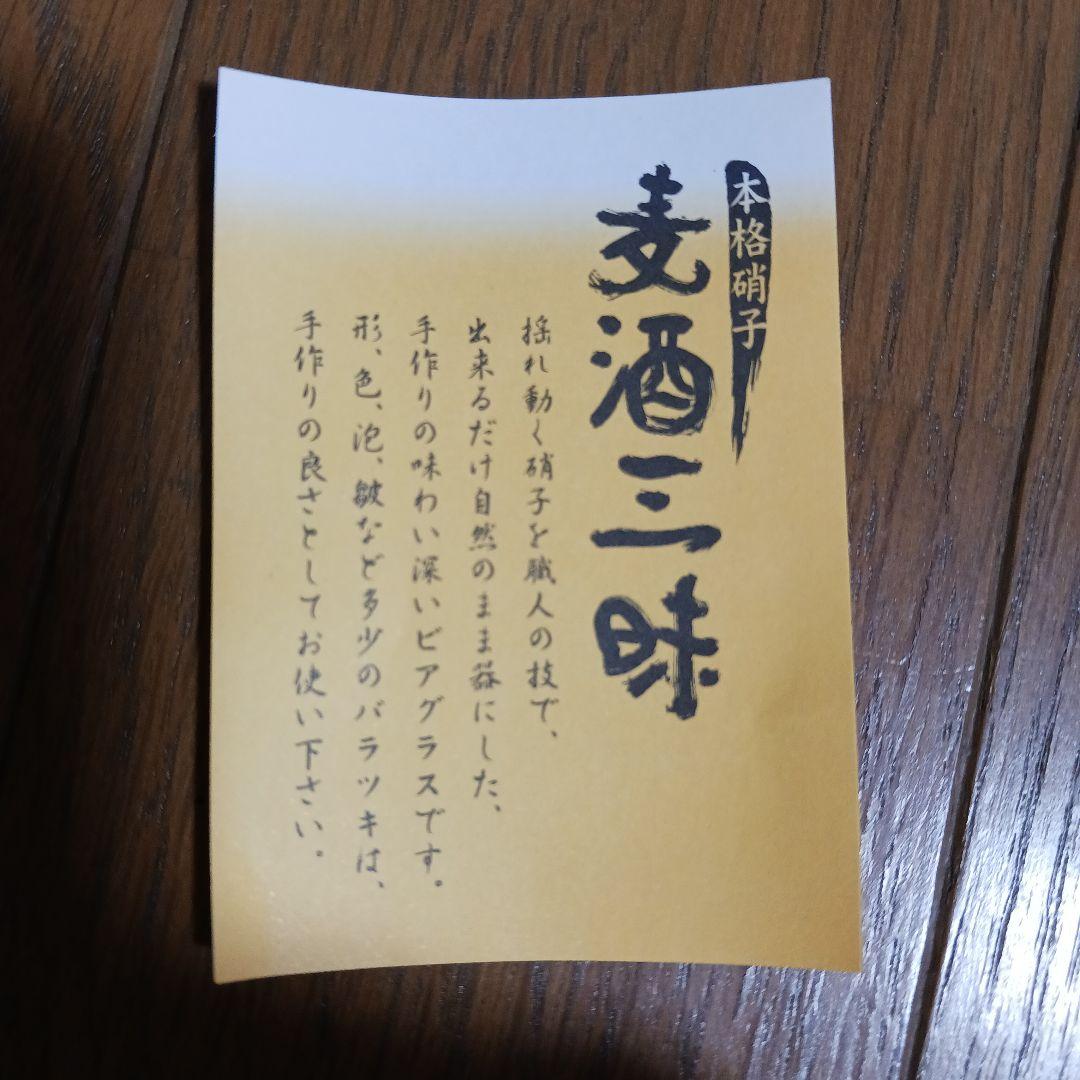 本格硝子
麦酒三昧
揺れ動く硝子を職人の技で、
出来るだけ自然のまま器にした、
手作りの味わい深いビアグラスです。
形、色、泡、皺など多少のバラツキは、
手作りの良さとしてお使い下さい。